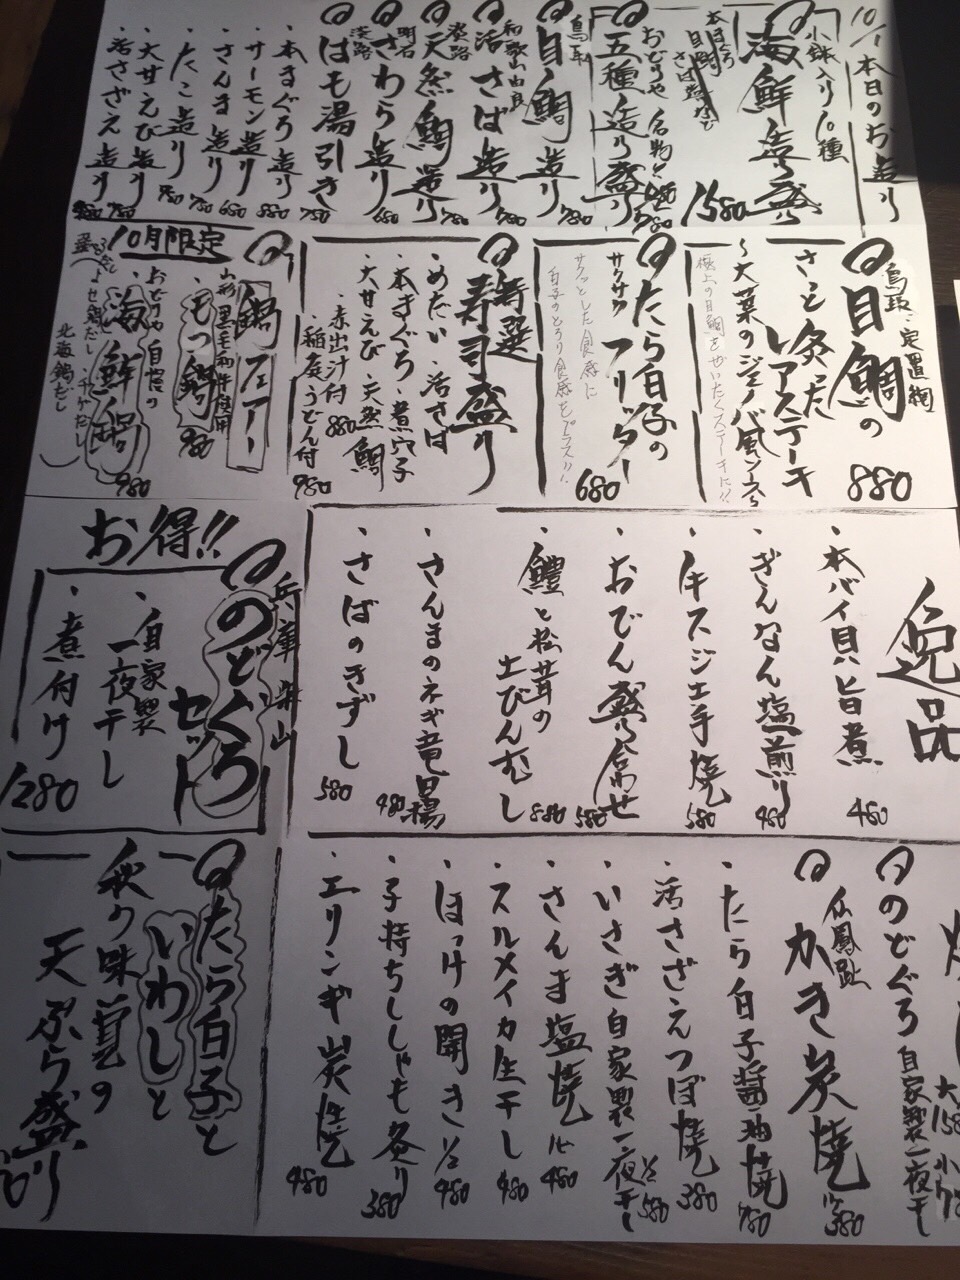 10/1 本日のお造り
海鮮造り盛り
小鉢入り10種
1580
五種造り盛り
おどりや名物!!
鳥取
目鯛造り
780
和歌山由良
活さば造り
780
淡路
天然鯛造り
780
明石
さわら造り
680
淡路
はも湯引き
780
・本まぐろ造り
880
・サーモン造り
680
・さんま造り
780
・たこ造り
780
・大甘えび造り
780
・活さざえ造り
980
鳥取 定置網
目鯛の
さっと炙った
レアステーキ
〜大葉のジェノバ風ソース〜
880
極上の目鯛をぜいたくステーキに!!
たら白子の
サクサクフリッター
サクッとした食感に
白子のとろり食感をプラス!!
680
特選
寿司盛り
・めだい・活さば
・本まぐろ・煮穴子
・大甘えび・天然鯛
・赤出汁付 880
・稲庭うどん付 980
10月限定
鍋フェアー
山形 黒毛和牛使用
・もつ鍋
980
自慢の
・海鮮鍋
よせ鍋だし・チゲだし
北海鍋だし
980
逸品
・本バイ貝旨煮
480
・ぎんなん塩煎り
480
・牛スジ土手焼
580
・おでん盛り合わせ
580
・鱧と松茸の
土びんむし
880
・さんまのネギ竜田揚
480
・さばのきずし
580
お得!!
兵庫 柴山
のどぐろ
セット
・自家製
一夜干し
・煮付け
1280
のどぐろ 自家製一夜干し
仙鳳趾
かき炭焼
380
・たら白子醤油焼
780
・活さざえつぼ焼
380
・いさぎ自家製一夜干し
1/2 580
・さんま塩焼
480
・スルメイカ生干し
480
・ほっけの開き
1/2 480
・子持ちししゃも炙り
380
・エリンギ炭焼
480
たら白子と
いわしと
秋の味覚の
天ぷら盛り